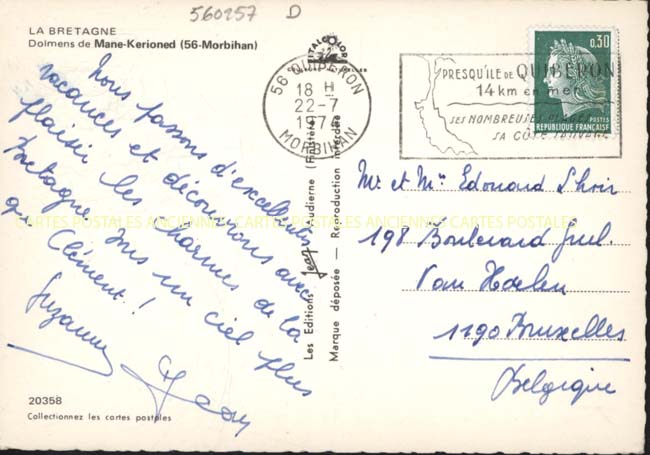 560257 D
LA BRETAGNE
Dolmens de Mane-Kerioned (56-Morbihan)
Nous passons d'excellentes
vacances et découvrons avec
plaisir les charmes de la
Bretagne sous un ciel plus
que Clément !
Suzanne
20358
Collectionnez les cartes postales
Les Editions Jean Audierne (Finistère)
Marque déposée — Reproduction interdite
56 QUIBERON
18 H
22-7
1974
MORBIHAN
PRESQU'ILE DE QUIBERON
14 km en mer
SES NOMBREUSES PLAGES
SA CÔTE SAUVAGE
0,30
POSTES
REPUBLIQUE FRANÇAISE
Mr et Me Edouard
198 Boulevard Guil.
Van Haelen
1190 Bruxelles
Belgique
CARTES POSTALES ANCIENNES CARTES POSTALES ANCIENNES CARTES POSTALES